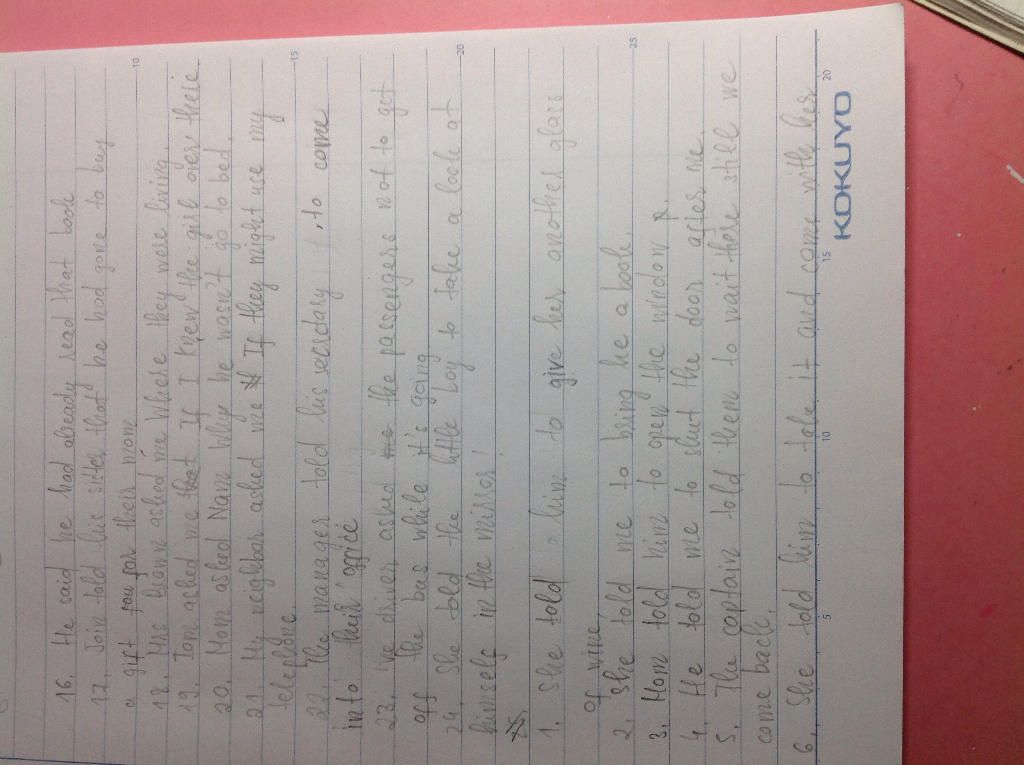 16. He said he had already read that book
17. Join told his sister that he had gone to buy
a gift for their mom
18. Mrs brown asked me Where they were living.
19. Tom asked me that If I knew the girl over there.
20. Mom asked Nam Why he wasn't go to bed.
21. My neighbar asked me If they might use my
telephone.
22. The manager told his secretary, to come
into their office
23. The driver asked the passengers not to get
off the bus while it's going
24. She told the little boy to take a look at
himself in the mirror!
1. She told him to give her another glass
of wine.
2. She told me to bring he a book.
3. Mom told him to open the window
4. He told me to shut the door after me.
5. The captain told them to wait there still we
come back.
6. She told him to take it and come with her
10
15
20
25
5
10
15
20
KOKUYO